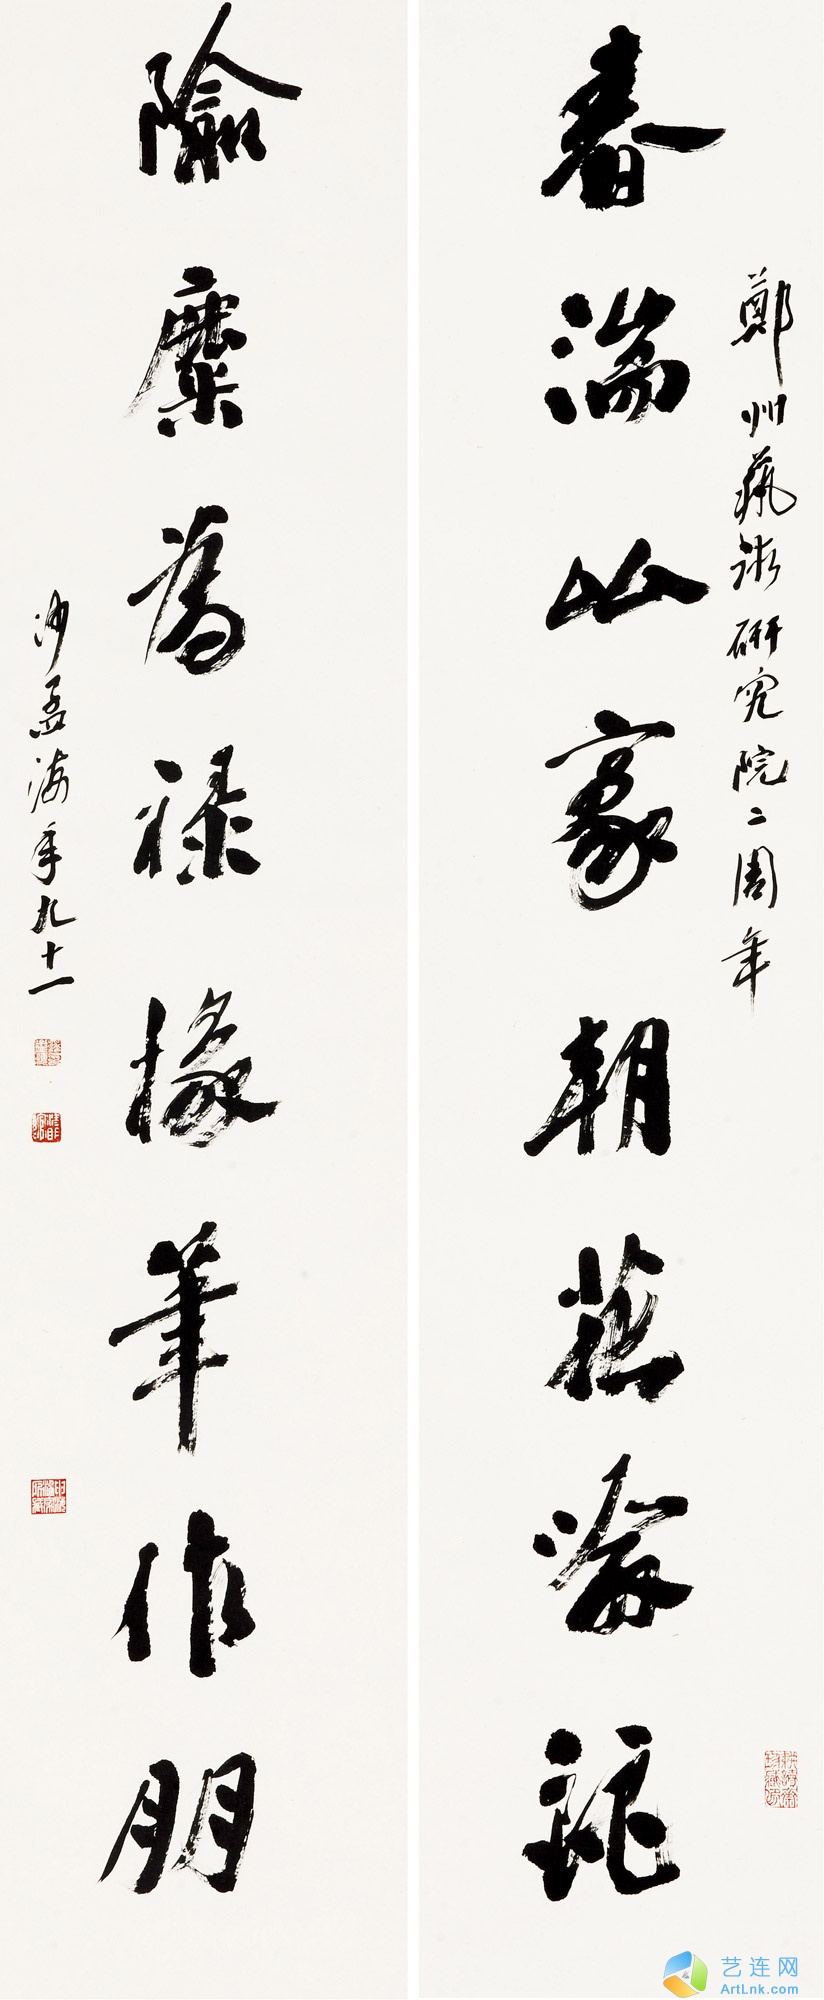 鄭州藝術研究院二周年
春湍豪朝喻
隃麋為祿椽筆作朋
沙孟海年九十一
艺连网
ArtLnk.com